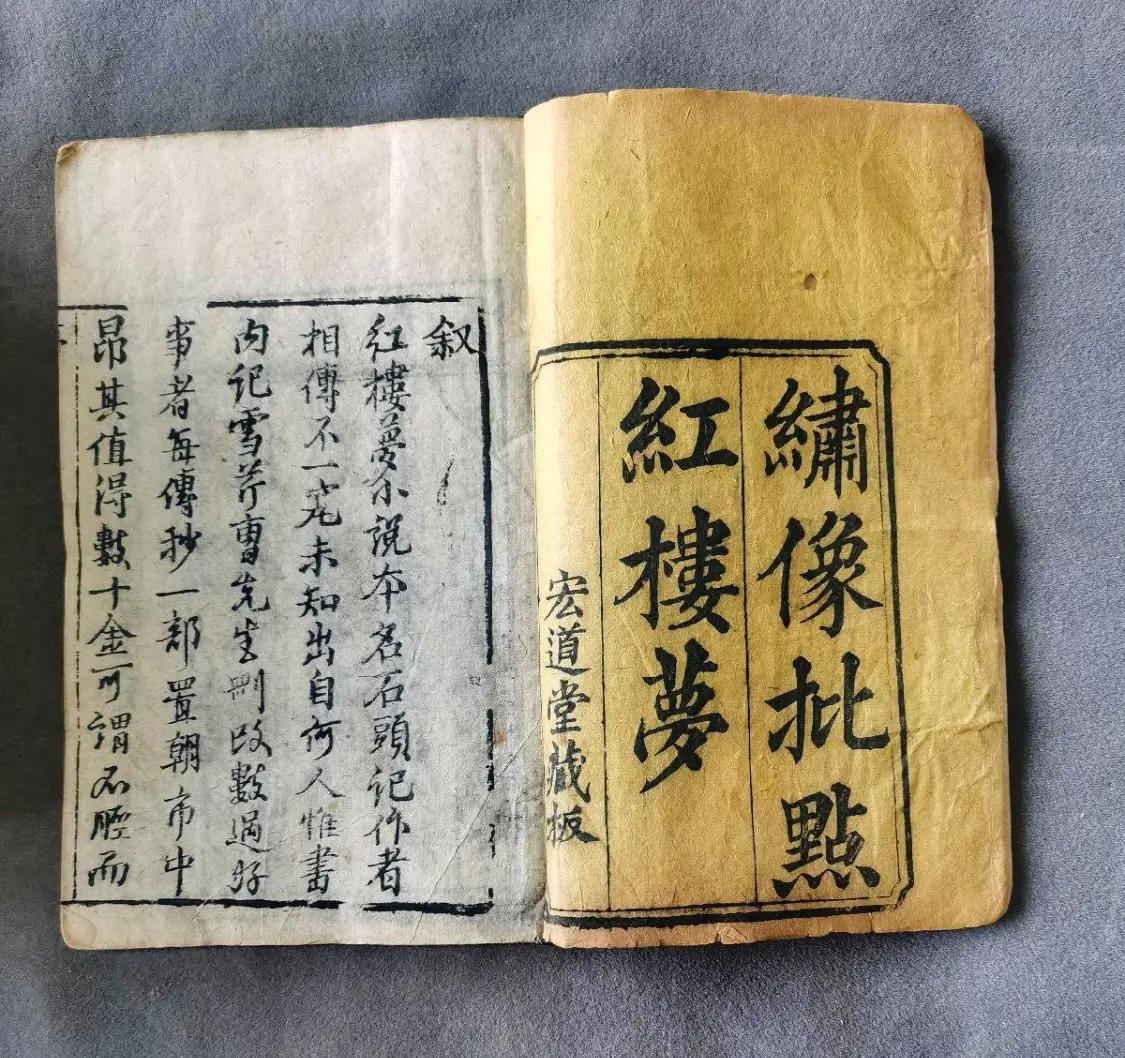 繡像批點
紅樓夢
宏道堂藏板
叙
红樓夢小說本名石頭记作者
相傳不一究未知出自何人惟書
内记雪芹曹先生刪改數過好
事者每傳抄一部置朝市中
昂其值得數十金可謂不脛而